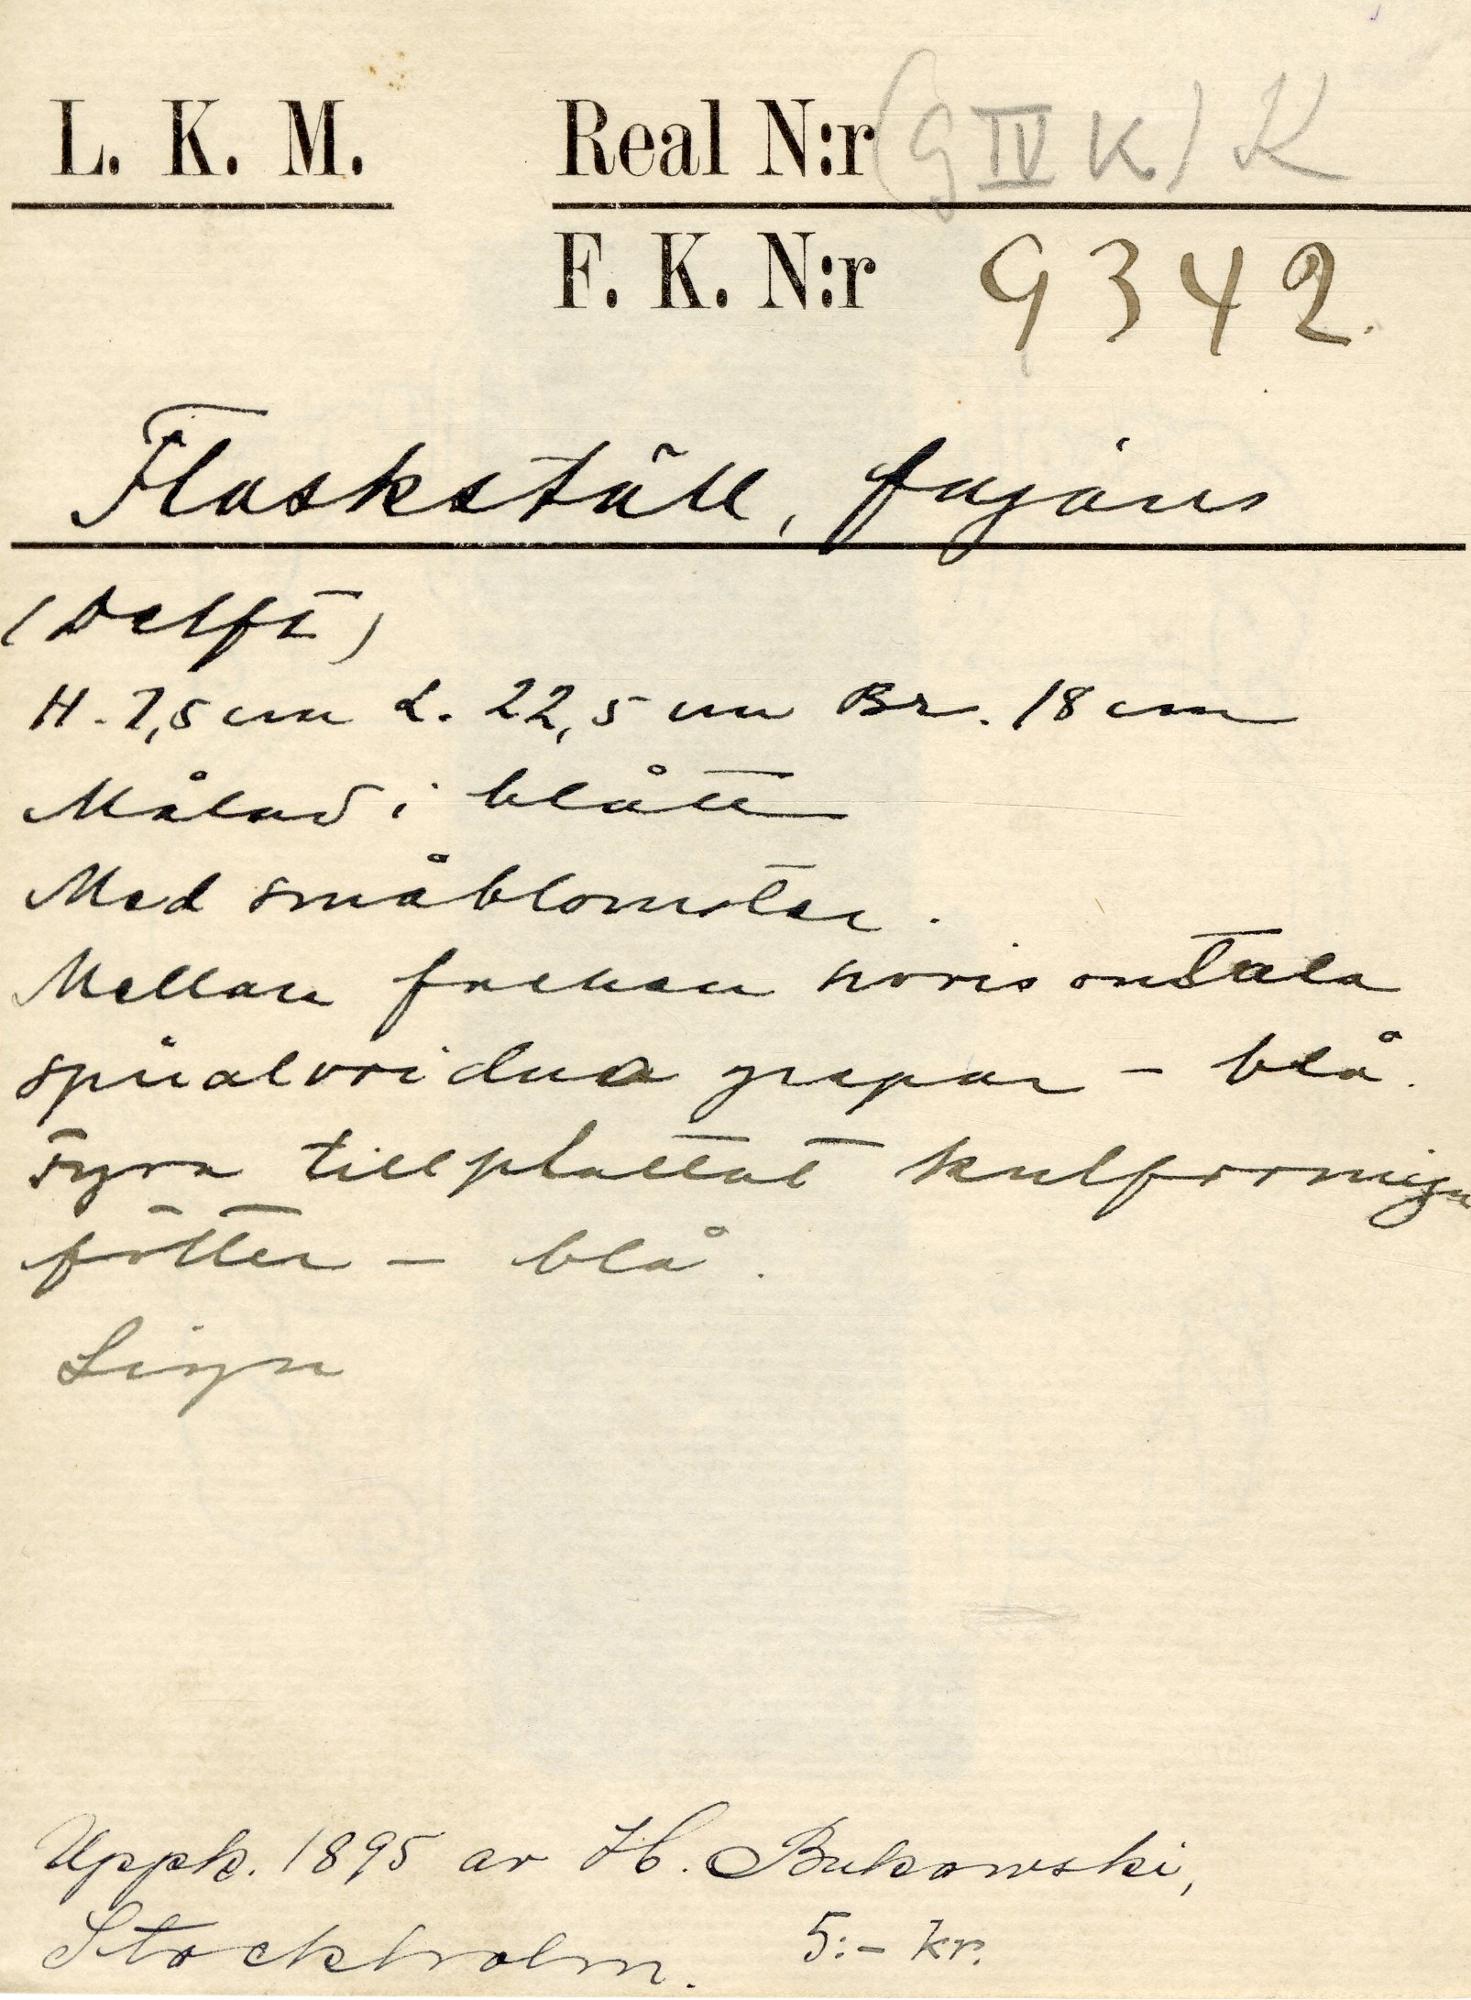 L. K. M. Real N:r (G IV K) K
F. K. N:r 9342.
Flaskställ, fajans
(Delft)
H. 7,5 cm L. 22,5 cm Br. 18 cm
Målad i blått
Med småblomster.
Mellan facken horisontala
spiralvridna grepar - blå.
Fyra tillplattat kulformiga
fötter - blå.
Sign
Uppk. 1895 av H. Bukowski,
Stockholm. 5:- kr.